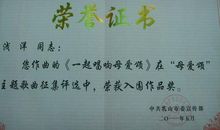 荣誉证书
浅洋同志：
您作曲的《一起唱响母爱颂》在“母爱颂”
主题歌曲征集评选中，荣获入围作品奖。
中共乳山市委宣传部
二〇一一年五月